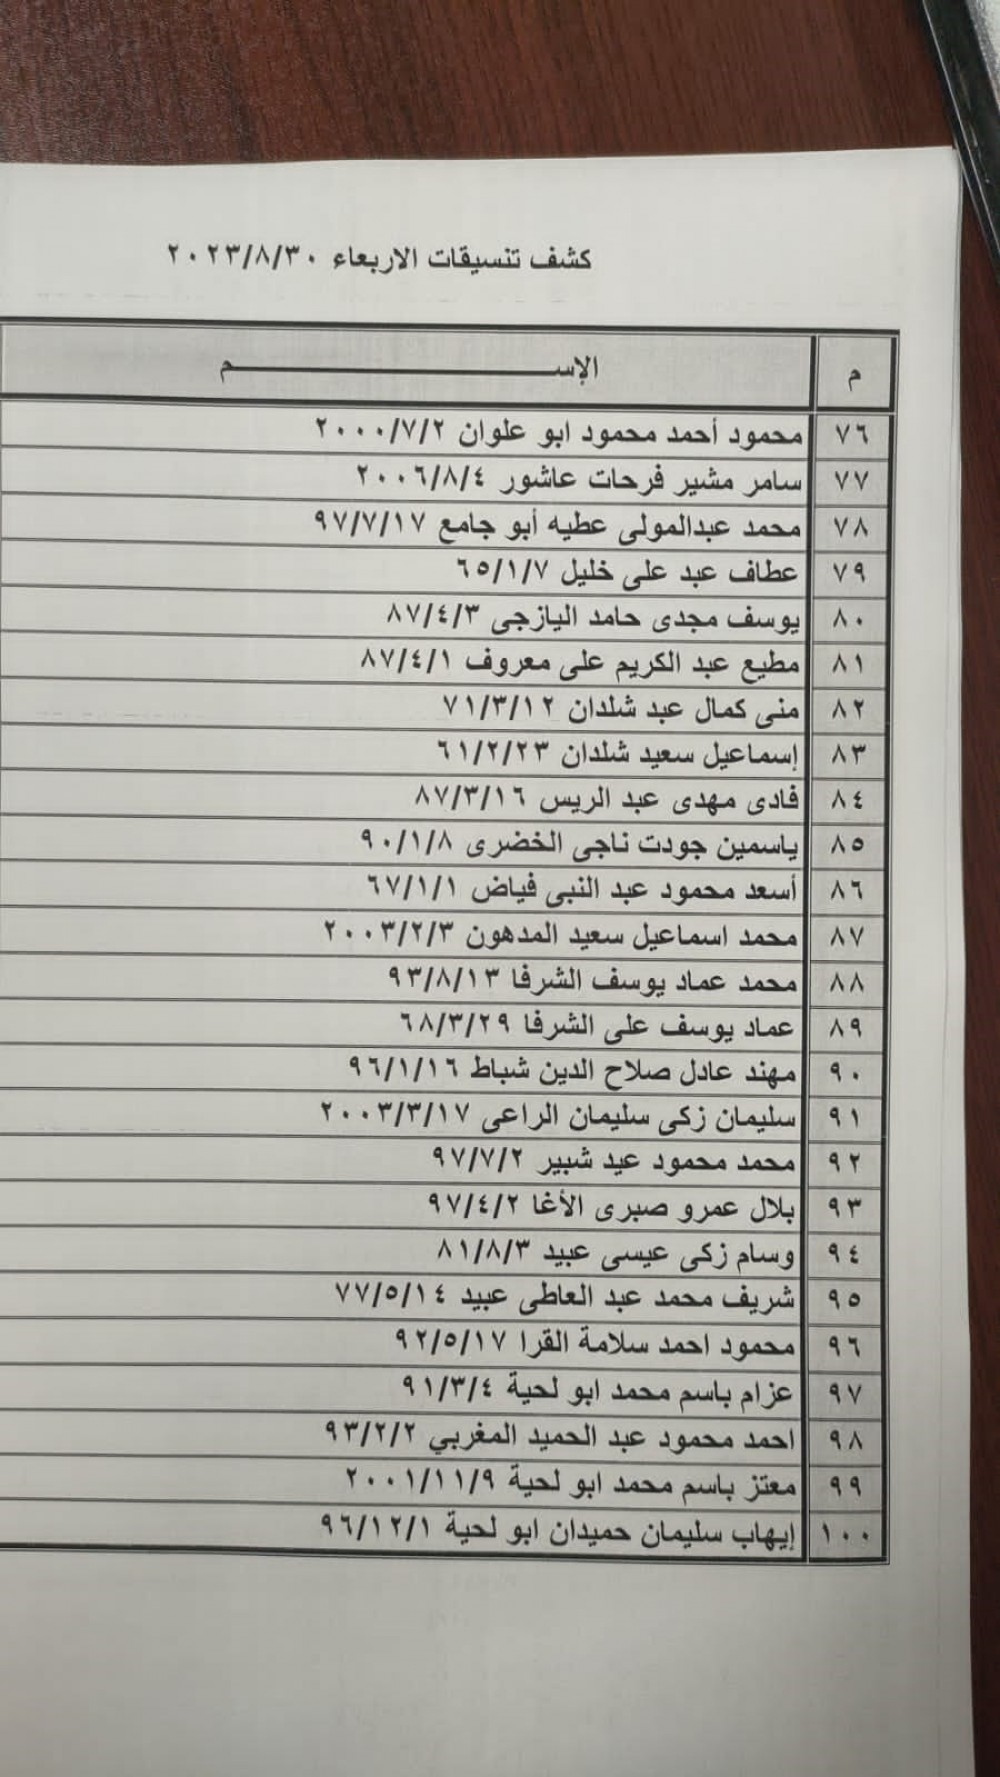 كشف تنسيقات الاربعاء ٢٠٢٣/٨/٣٠
م الإســـــــــم
٧٦ محمود أحمد محمود ابو علوان ٢٠٠٠/٧/٢
٧٧ سامر مشير فرحات عاشور ٢٠٠٦/٨/٤
٧٨ محمد عبدالمولى عطيه أبو جامع ٩٧/٧/١٧
٧٩ عطاف عبد على خليل ٦٥/١/٧
٨٠ يوسف مجدى حامد اليازجى ٨٧/٤/٣
٨١ مطيع عبد الكريم على معروف ٨٧/٤/١
٨٢ منى كمال عبد شلدان ٧١/٣/١٢
٨٣ إسماعيل سعيد شلدان ٦١/٢/٢٣
٨٤ فادى مهدى عبد الريس ٨٧/٣/١٦
٨٥ ياسمين جودت ناجى الخضرى ٩٠/١/٨
٨٦ أسعد محمود عبد النبى فياض ٦٧/١/١
٨٧ محمد اسماعيل سعيد المدهون ٢٠٠٣/٢/٣
٨٨ محمد عماد يوسف الشرفا ٩٣/٨/١٣
٨٩ عماد يوسف على الشرفا ٦٨/٣/٢٩
٩٠ مهند عادل صلاح الدين شباط ٩٦/١/١٦
٩١ سليمان زكى سليمان الراعى ٢٠٠٣/٣/١٧
٩٢ محمد محمود عيد شبير ٩٧/٧/٢
٩٣ بلال عمرو صبرى الأغا ٩٧/٤/٢
٩٤ وسام زكى عيسى عبيد ٨١/٨/٣
٩٥ شريف محمد عبد العاطى عبيد ٧٧/٥/١٤
٩٦ محمود احمد سلامة القرا ٩٢/٥/١٧
٩٧ عزام باسم محمد ابو لحية ٩١/٣/٤
٩٨ احمد محمود عبد الحميد المغربي ٩٣/٢/٢
٩٩ معتز باسم محمد ابو لحية ٢٠٠١/١١/٩
١٠٠ إيهاب سليمان حميدان ابو لحية ٩٦/١٢/١